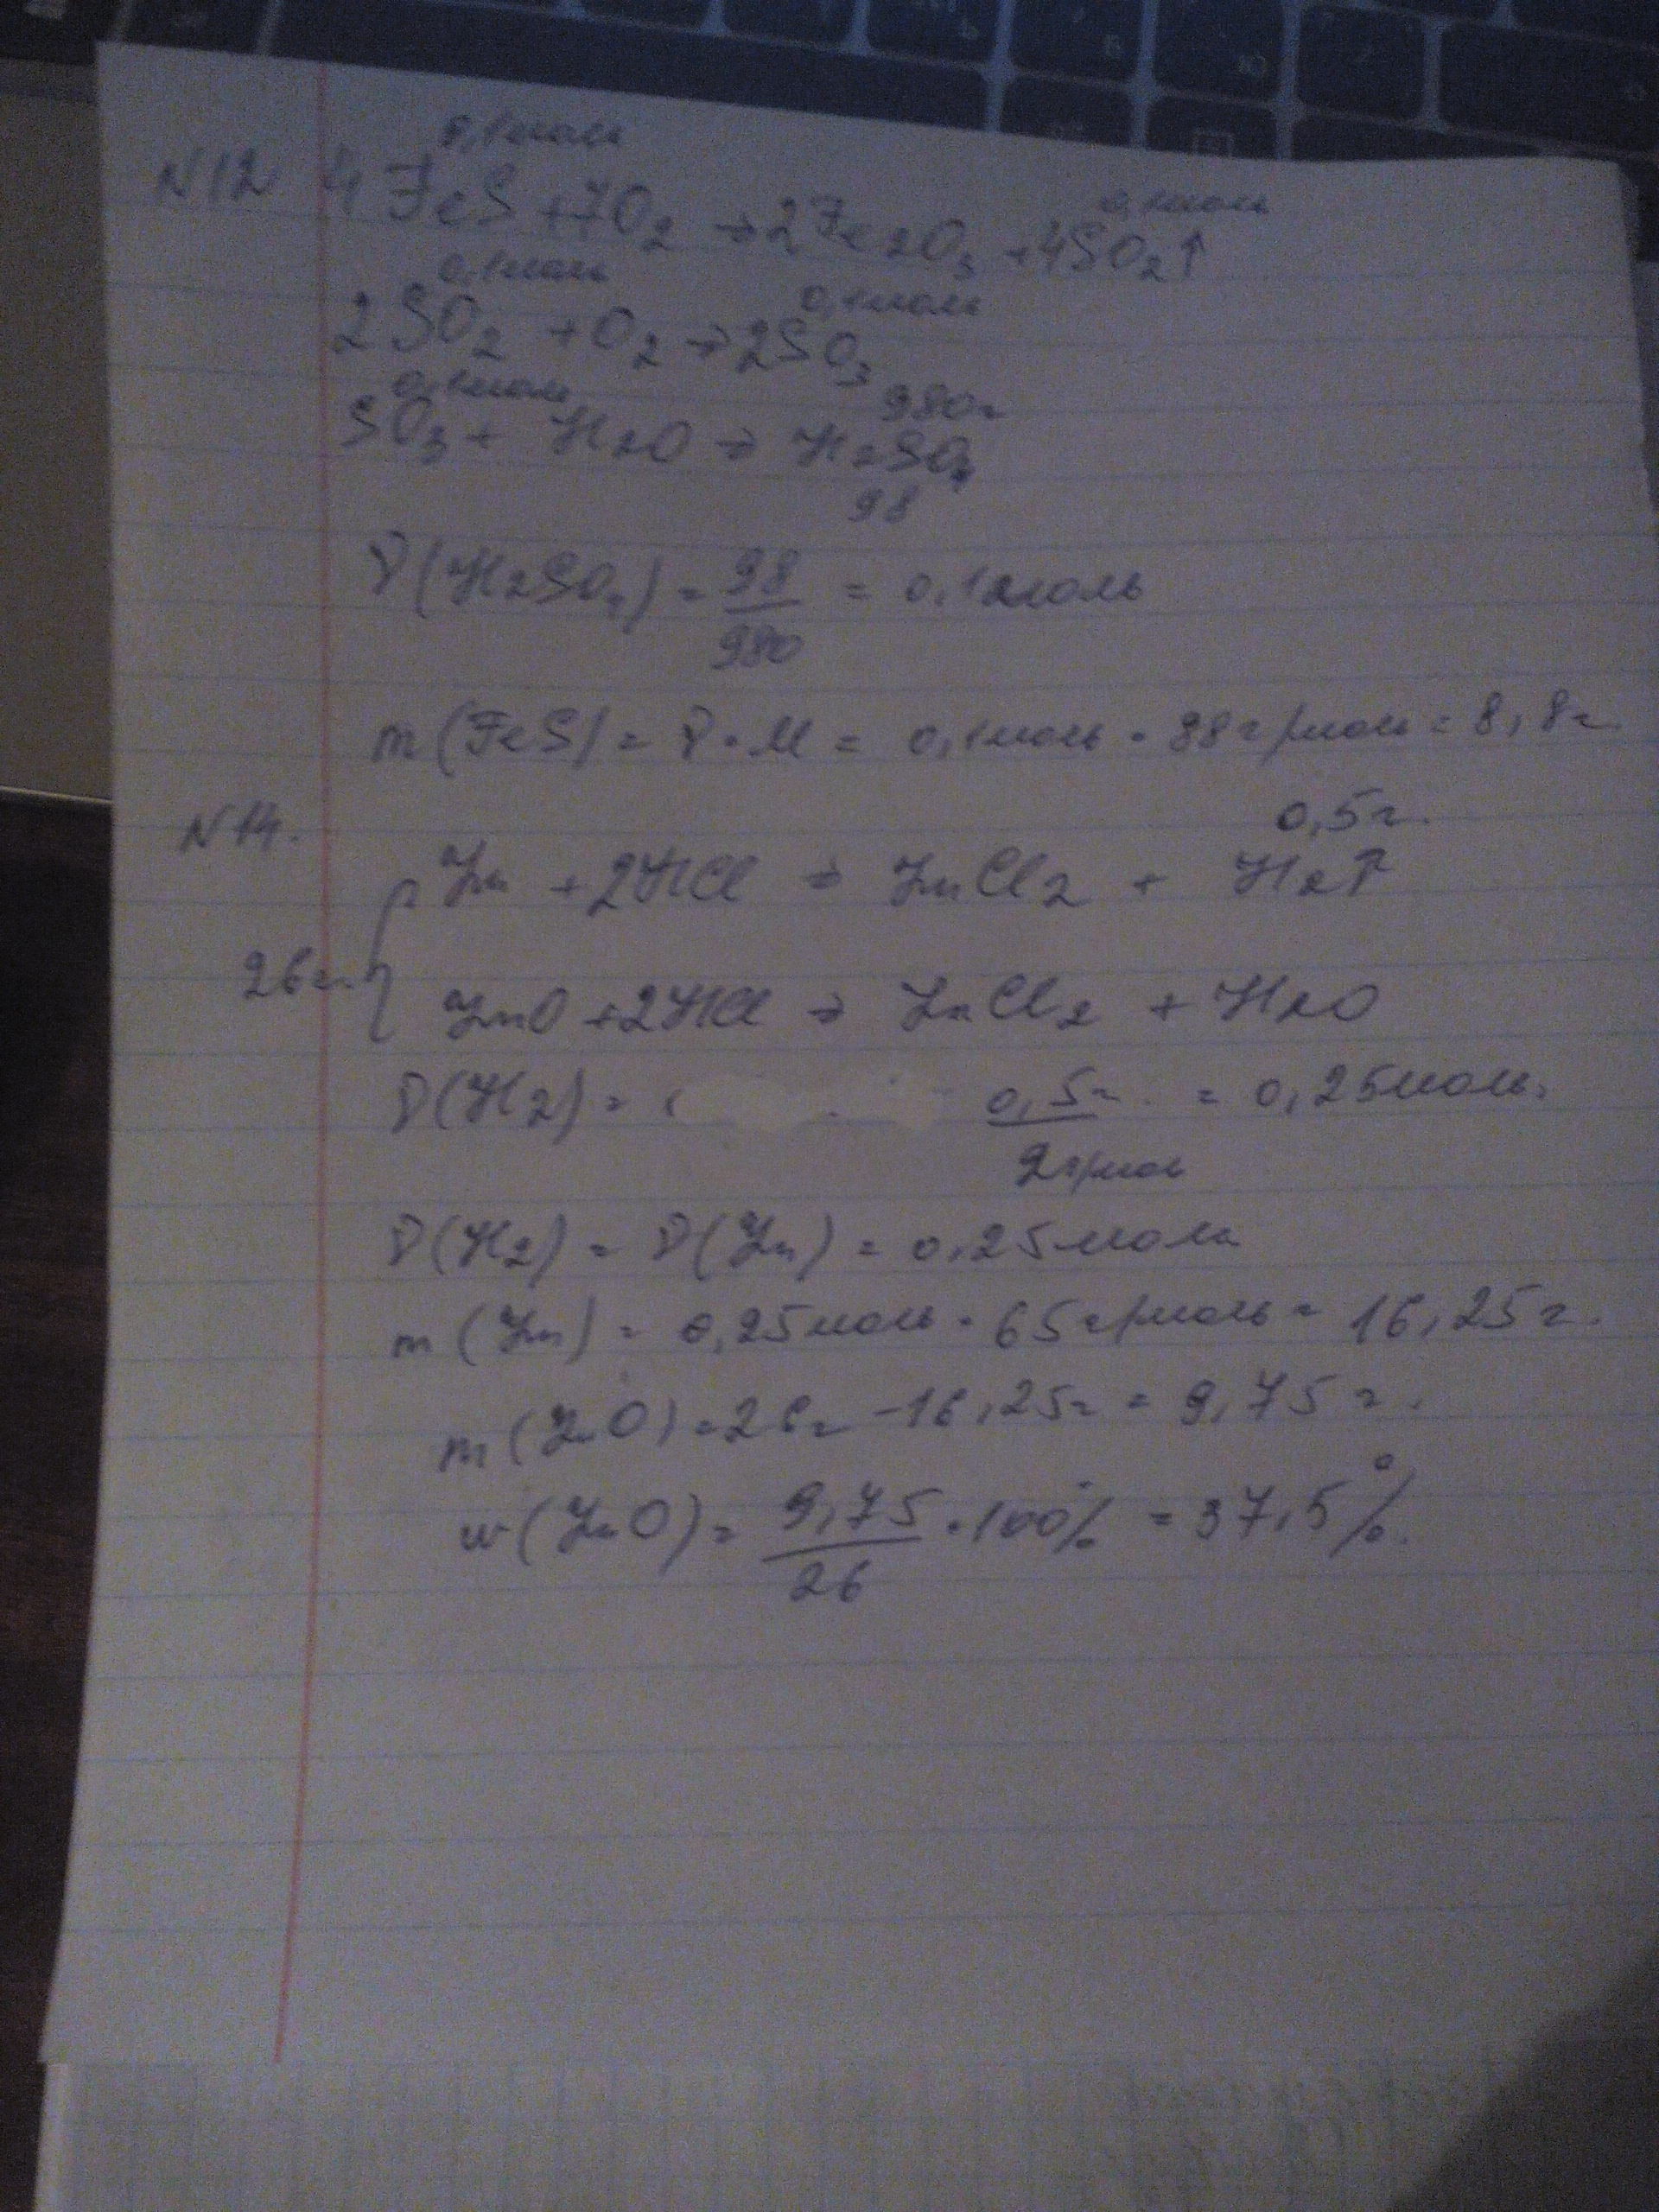 0,1моль
N12 4FeS + 7O2 → 2Fe2O3 + 4SO2↑
0,1моль
0,1моль 0,1моль
2SO2 + O2 → 2SO3
0,1моль 980г
SO3 + H2O → H2SO4
98
ν(H2SO4) = 98/980 = 0,1моль
m(FeS) = ν·M = 0,1моль · 88г/моль = 8,8г
N14. 0,5г.
Zn + 2HCl → ZnCl2 + H2↑
26г.
ZnO + 2HCl → ZnCl2 + H2O
ν(H2) = 0,5г/2г/моль = 0,25моль.
ν(H2) = ν(Zn) = 0,25моль
m(Zn) = 0,25моль · 65г/моль = 16,25г.
m(ZnO) = 26г - 16,25г = 9,75г.
w(ZnO) = 9,75/26 · 100% = 37,5%.